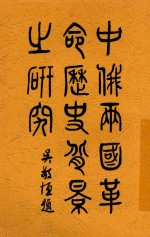 中俄兩國革
命歷史背景
之研究
吳敬恆題